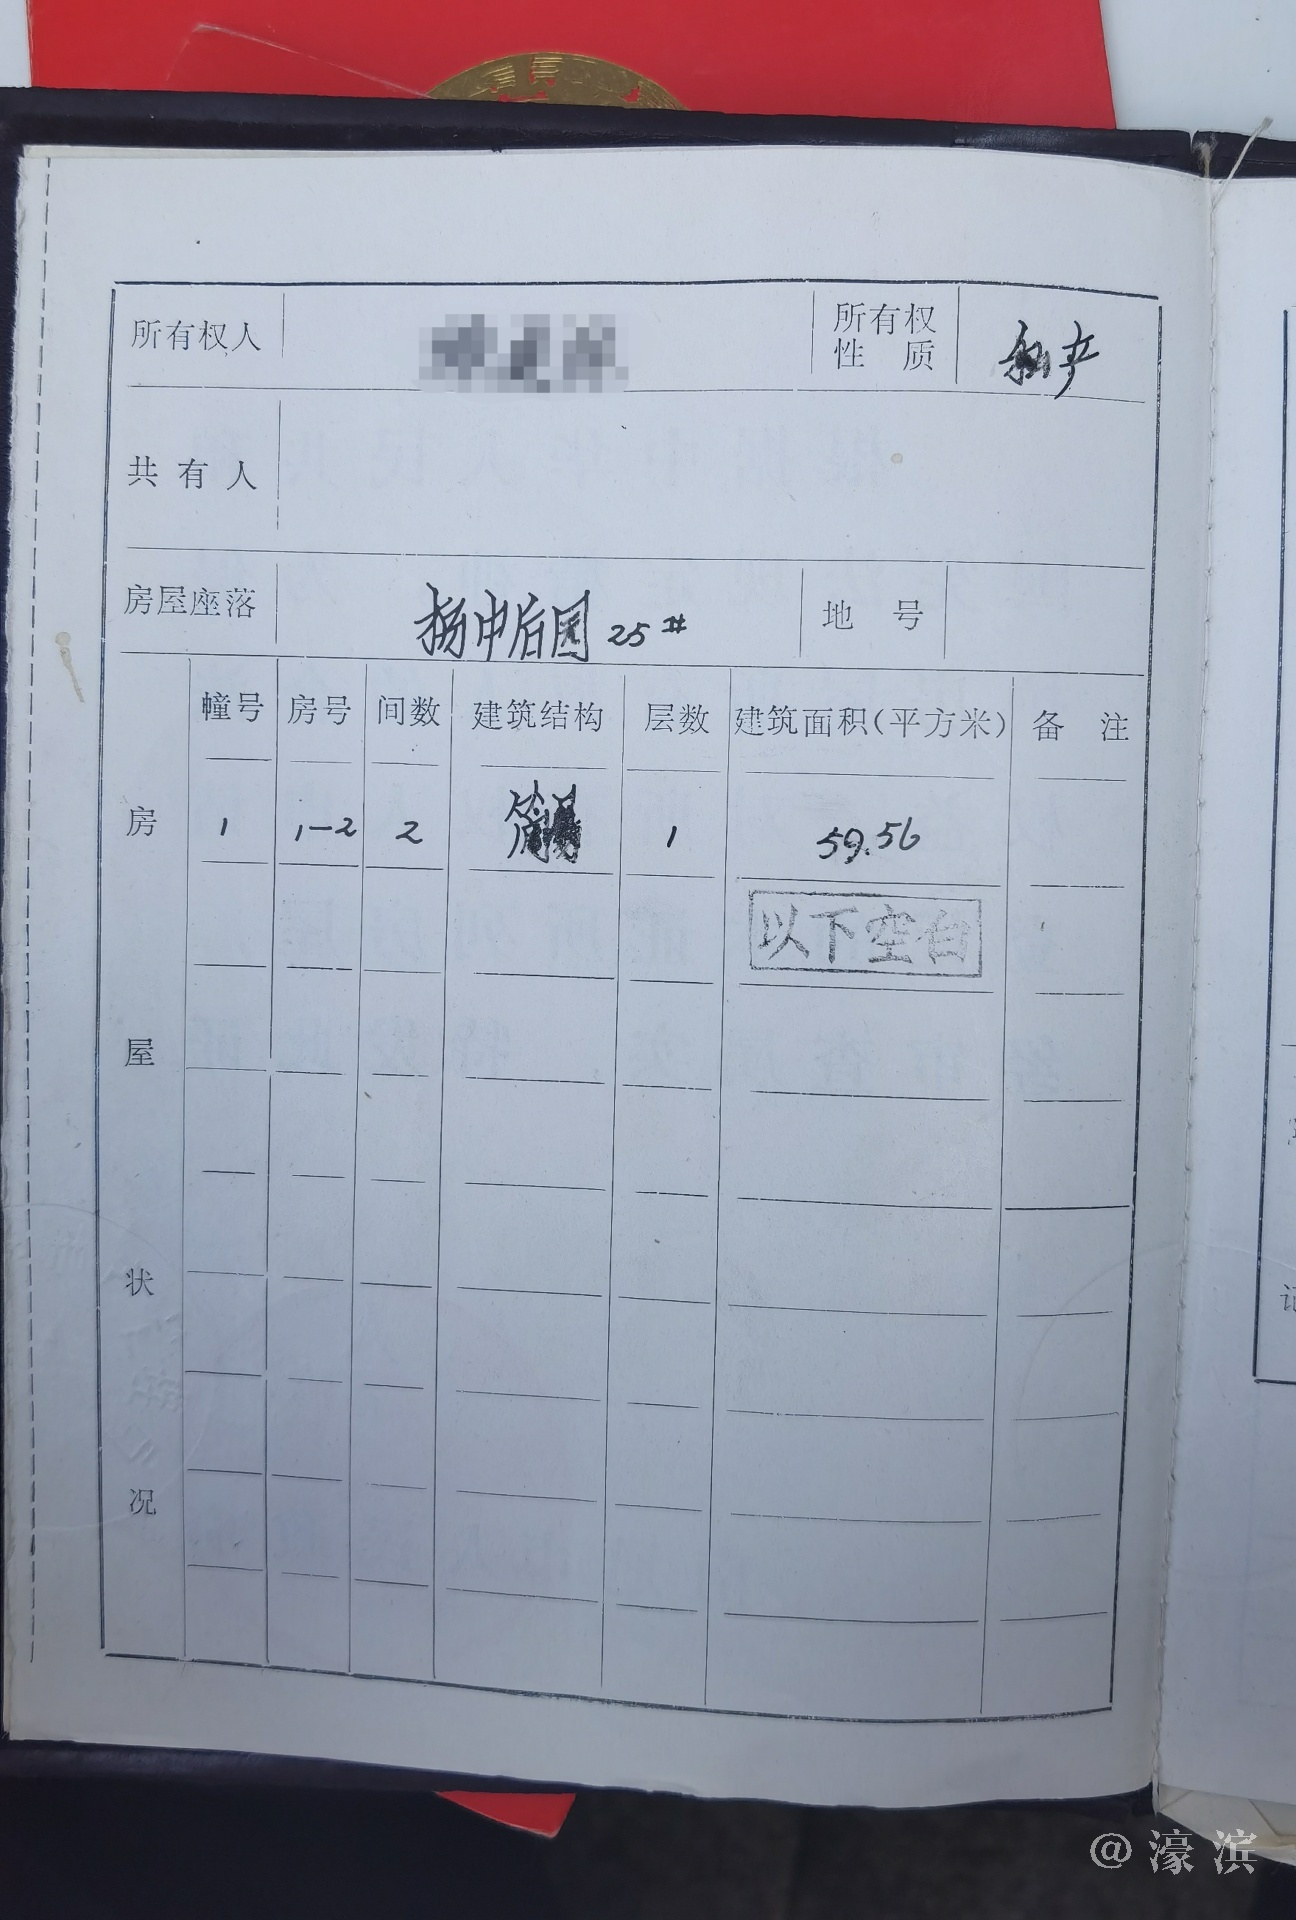 所有权人 所有权性质 私产
共有人
房屋座落 扬中后园 25# 地号
房屋状况
幢号 房号 间数 建筑结构 层数 建筑面积(平方米) 备注
1 1-2 2 1 59.56
以下空白
记
@濠滨